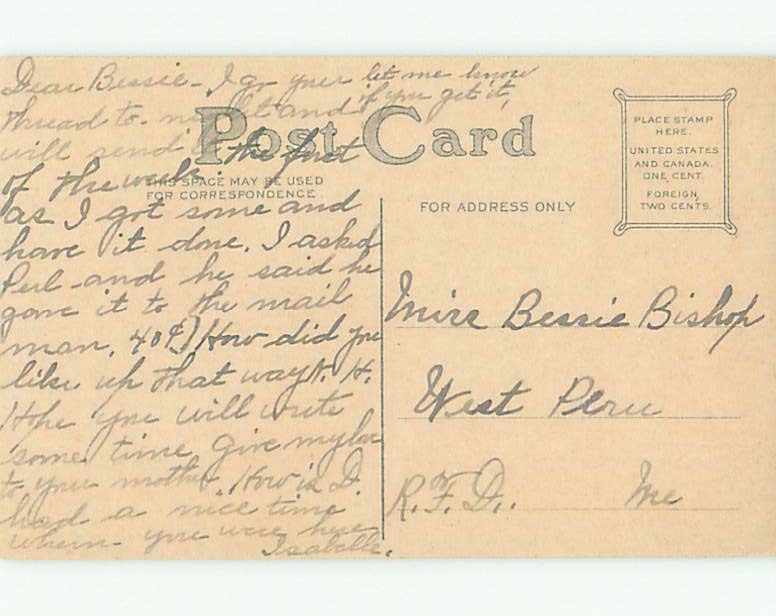 Dear Bessie - I go your let me know
thread to-night and if you get it,
will send it the first
of the week.
as I got some and
have it done. I asked
Perl and he said he
gave it to the mail
man. 40¢) How did you
like up that way N. H.
Hope you will write
some time give my love
to your mother. How is D.
had a nice time
when you were here
Isabelle.
Post Card
THIS SPACE MAY BE USED
FOR CORRESPONDENCE
FOR ADDRESS ONLY
PLACE STAMP
HERE.
UNITED STATES
AND CANADA.
ONE CENT.
FOREIGN,
TWO CENTS.
Miss Bessie Bishop
West Peru
R.F.D.. Me